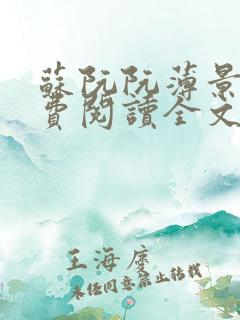 蘇阮阮薄景
費閱讀全文
王海庹
未经同意禁止转载